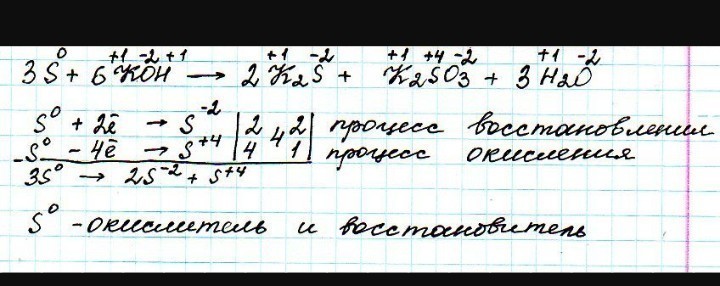 3S⁰ + 6K⁺¹O⁻²H⁺¹ → 2K₂⁺¹S⁻² + K₂⁺¹S⁺⁴O₃⁻² + 3H₂⁺¹O⁻²
S⁰ + 2ē → S⁻² | 2 | 4 | 2 | процесс восстановления
S⁰ - 4ē → S⁺⁴ | 4 | 1 | процесс окисления
3S⁰ → 2S⁻² + S⁺⁴
S⁰ - окислитель и восстановитель